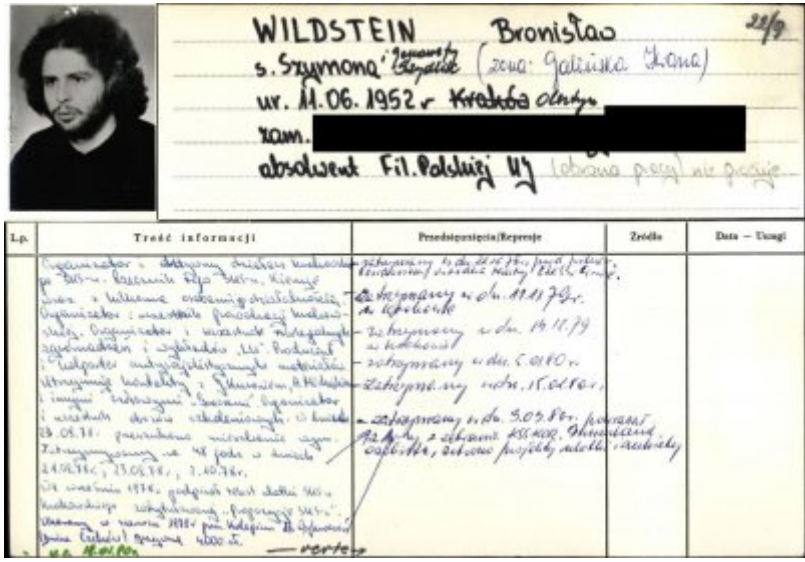 WILDSTEIN Bronisław 22/9
s. Szymona i Genowefy (żona: Galińska Iwona)
ur. 11.06.1952 r Kraków Olsztyn
zam.
absolwent Fil. Polskiej UJ (obrona pracy) nie pracuje
L.p. Treść informacji Przedsięwzięcia/Represje Źródło Data — Uwagi
Organizator i aktywny działacz krakowskie-
go SKS-u. Rzecznik tego SKS-u. Kieruje
wraz z kilkoma osobami działalnością.
Organizator i uczestnik prowokacji krakow-
skiej. Organizator i uczestnik nielegalnych
zgromadzeń i wykładów
i kolporter antysocjalistycznych materiałów
Utrzymuje kontakty z J. Kuroniem, A. Michnikiem
i innymi Organizator
i uczestnik obozów szkoleniowych. W dniu
23.08.78. przeszukano mieszkanie wym.
Zatrzymywany na 48 godz w dniach
23.08.78r, 2.10.78r.
We wrześniu 1978r. podpisał tekst ulotki SKS-u
krakowskiego zatytułowaną "Propozycje SKS-u".
Ukarany w 1978r przez Kolegium
grzywną 4000 zł.
- zatrzymany w dn.
- zatrzymany w dn. 11.11.79r.
w Krakowie
- zatrzymany w dn. 19.12.79
w Krakowie
- zatrzymany w dn. 5.01.80 r.
- zatrzymany w dn. 15.01.80 r.
- zatrzymany w dn. 9.03.80r.
z zebrania KSS KOR.
osobista, zabrano projekty ulotki i
— verte →